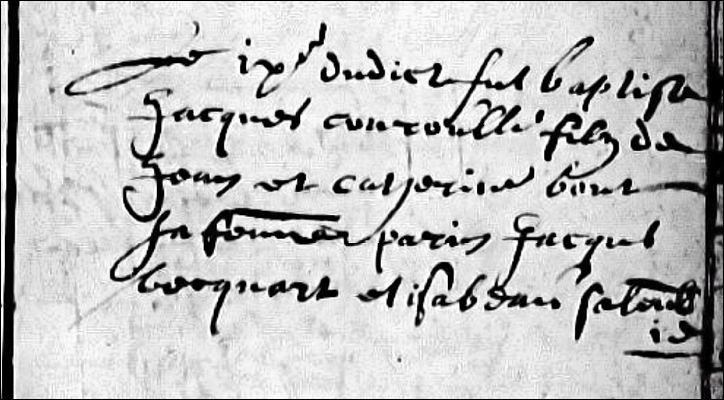 Le ixe dudict fut baptise
Jacques couroullé filz de
Jean et catherine bout
sa femme parin Jacques
becquart et isabeau